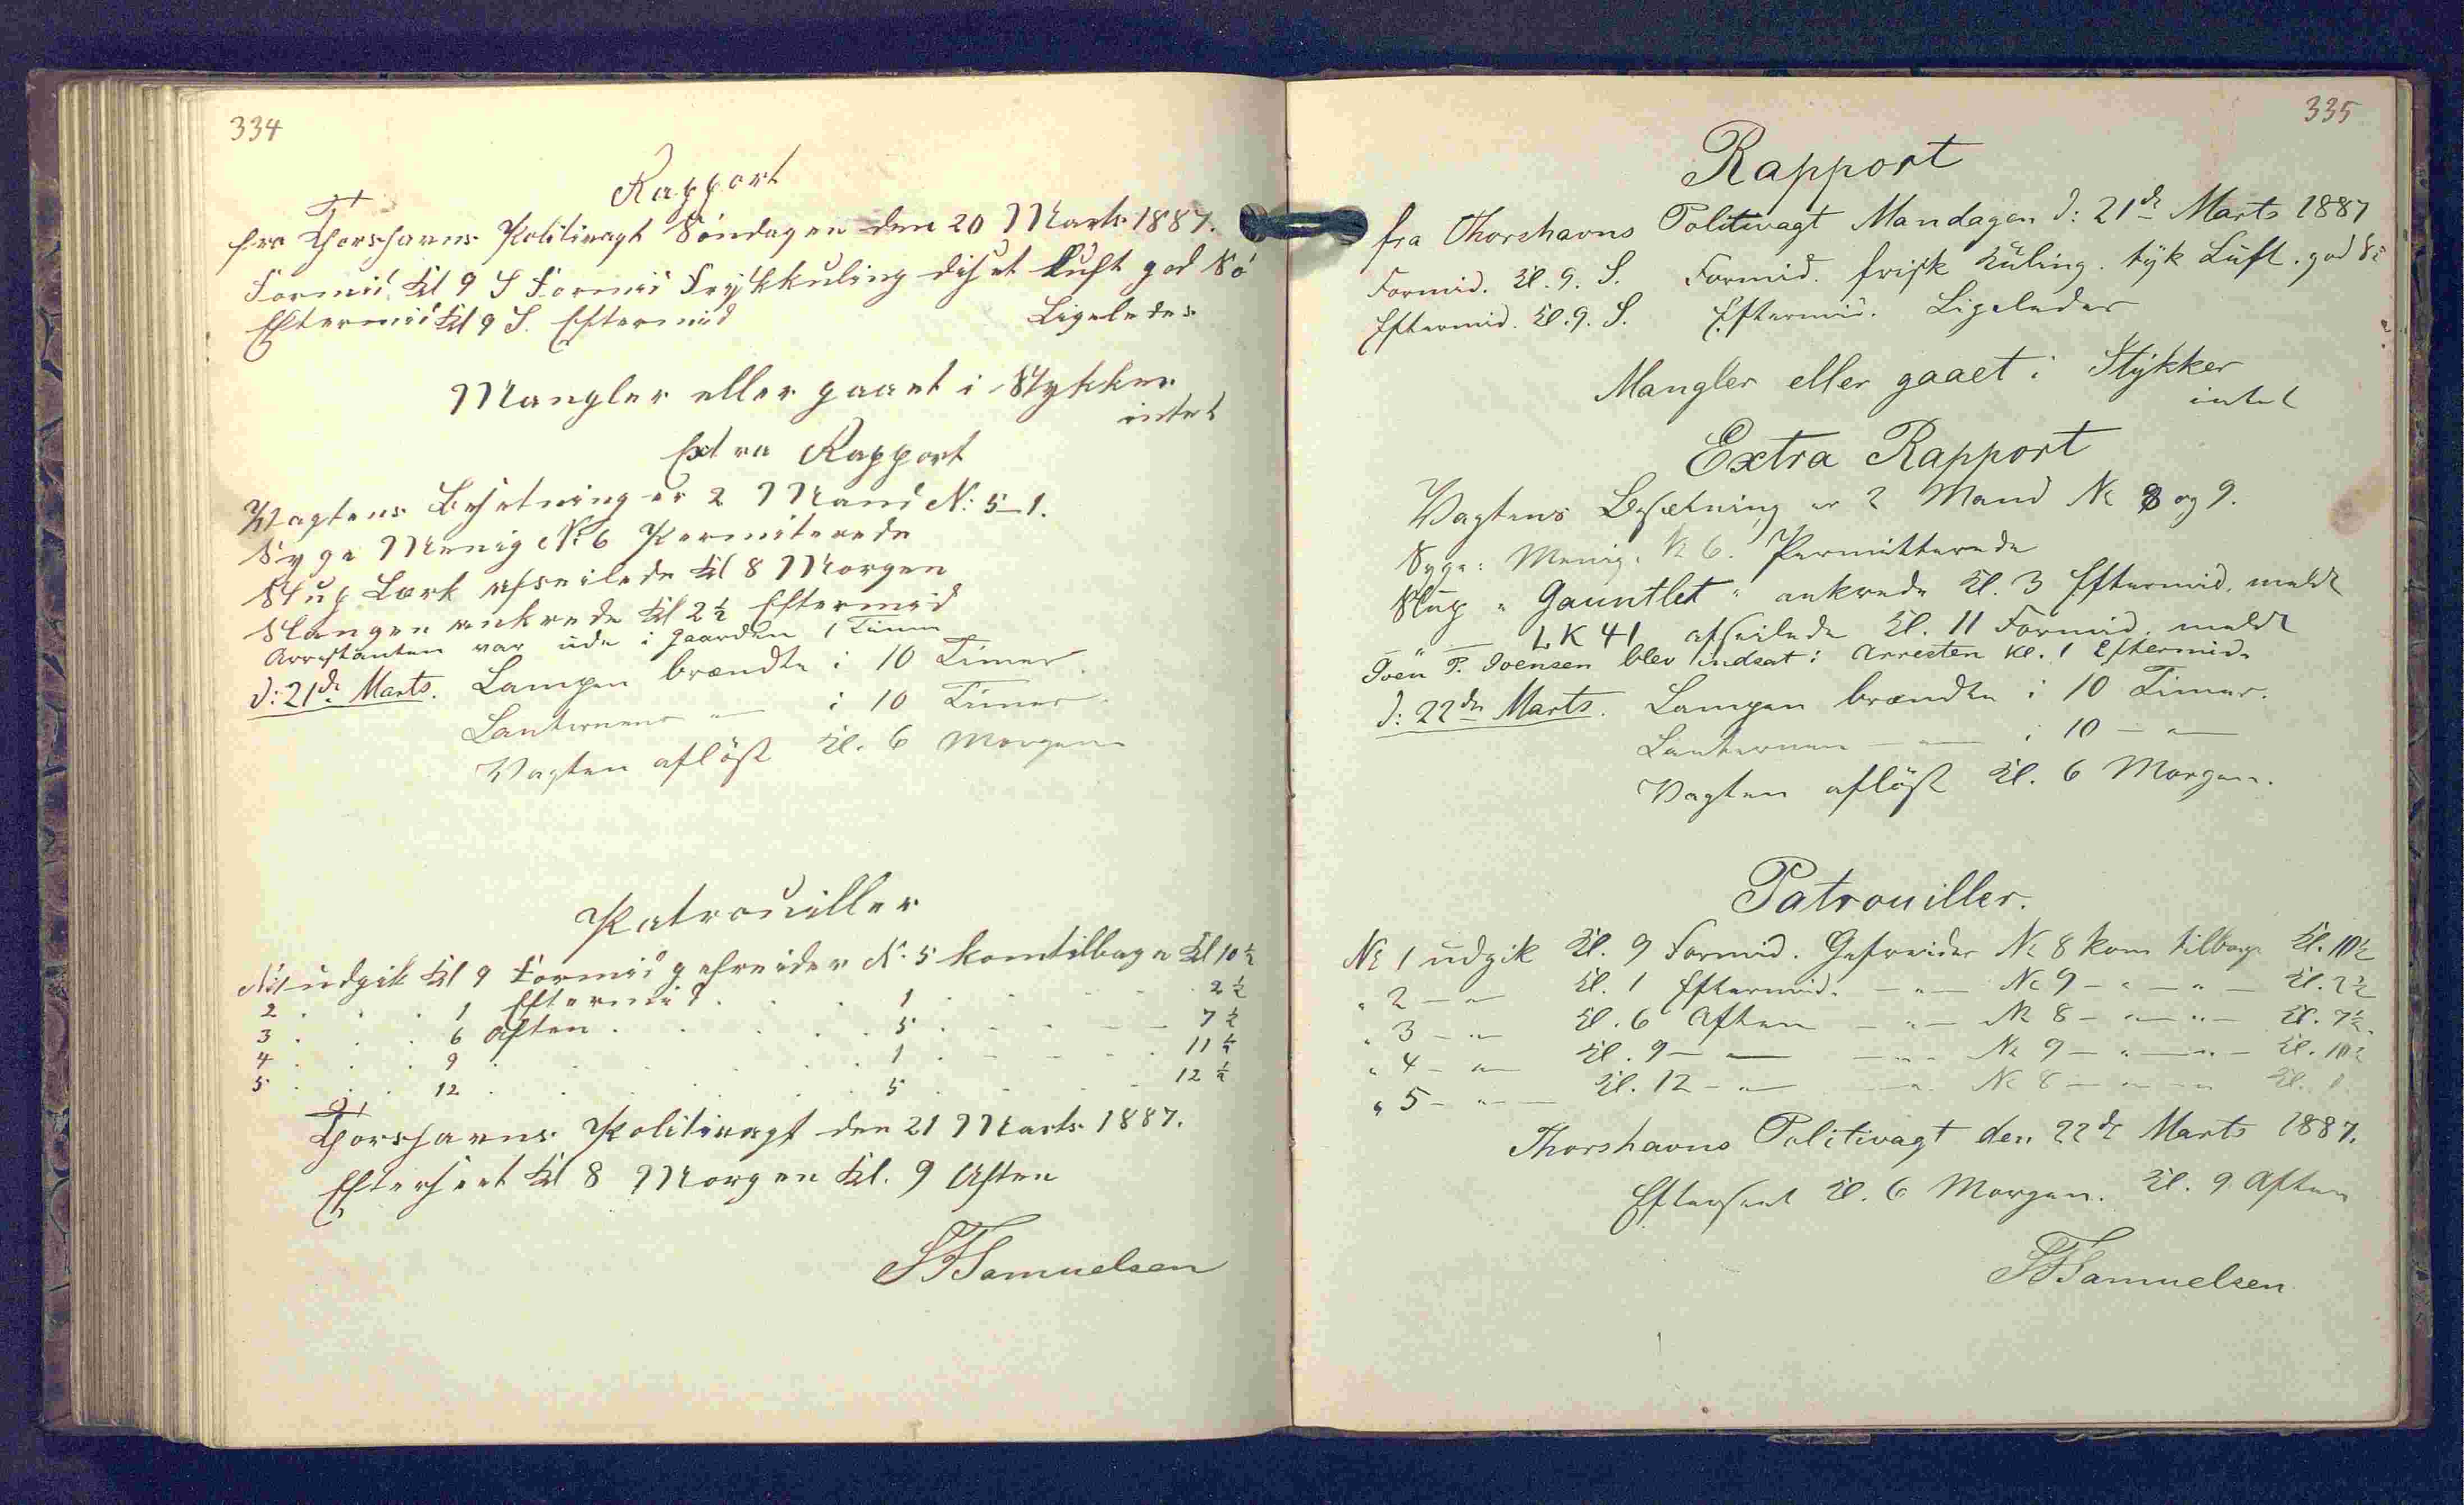 334
Rapport
fra Thorshavns Politivagt Söndagen den 20 Marts 1887.
Formid. Kl 9 S Formid Friskkuling diset Luft god Sö
Eftermid Kl 9 S. Eftermid Ligeledes
Mangler eller gaaet i Stykker
intet
Extra Rapport
Vagtens Besetning er 2 Mand N: 5–1.
Syge Menig N: 6 Permiterede
Slup Lærk afseilede Kl 8 Morgen
Slangen ankrede Kl 2½ Eftermid
Arrestanten var ude i Gaarden 1 Time
d: 21de Marts. Lampen brændte i 10 Timer.
Lanternene — " — i 10 Timer.
Vagten aflöst Kl. 6 Morgen
Patrouiller
N: 1 udgik Kl 9 Formid gefreider N: 5 kom tilbage Kl 10½
2 . . . 1 Eftermid . . . 1 . . . . 2½
3 . . . 6 Aften . . . . 5 . . . – – 7½
4 . . . 9 . . . . . 1 . – – . . 11½
5 . . . 12 . . . . . 5 . . . – 12½
Thorshavns Politivagt den 21 Marts 1887.
Efterseet Kl 8 Morgen Kl. 9 Aften
Samuelsen
335
Rapport
fra Thorshavns Politivagt Mandagen d: 21de Marts 1887
Formid. Kl. 9. S. Formid. frisk Kuling. tyk Luft. god Sö
Eftermid. Kl. 9. S. Eftermid. Ligeledes
Mangler eller gaaet i Stykker
intet
Extra Rapport
Vagtens Besætning er 2 Mand No 8 og 9.
Syge: Menig. No 6. Permitterede
Slup "Gauntlet" ankrede Kl. 3 Eftermid. meldt
— " — LK 41 afseilede Kl. 11 Formid. meldt
Joen P. Joensen blev indsat i Arresten Kl. 1 Eftermid.
d: 22de Marts. Lampen brændte i 10 Timer.
Lanternen — " — i 10 — " —
Vagten aflöst Kl. 6 Morgen.
Patrouiller.
No 1 udgik Kl. 9 Formid. Gefreider No 8 kom tilbage Kl. 10½
" 2 — " — Kl. 1 Eftermid. — " — No 9 — " — " — Kl. 2½
" 3 — " — Kl. 6 Aften — " — No 8 — " — " — Kl. 7½.
" 4 — " — Kl. 9 — " — — " — No 9 — " — " — Kl. 10½
" 5 — " — Kl. 12 — " — — " — No 8 — " — " — Kl. 1
Thorshavns Politivagt den 22de Marts 1887.
Efterseet Kl. 6 Morgen. Kl. 9 Aften
Samuelsen